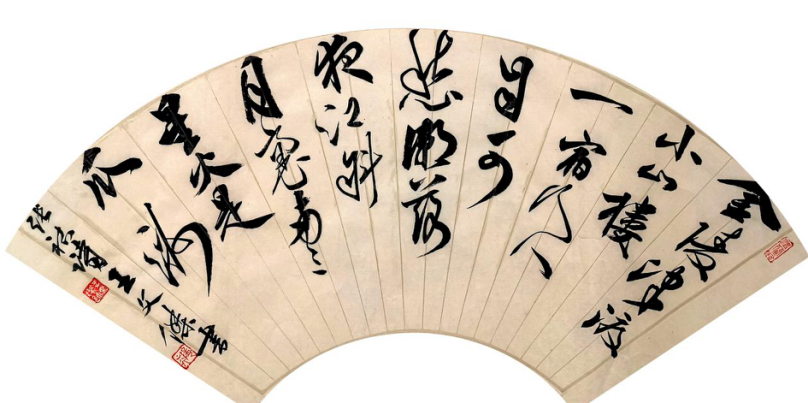 金陵津渡
小山樓
一宿行人
自可
愁潮落
夜江斜
月裏兩三
星火是
瓜洲
王文書